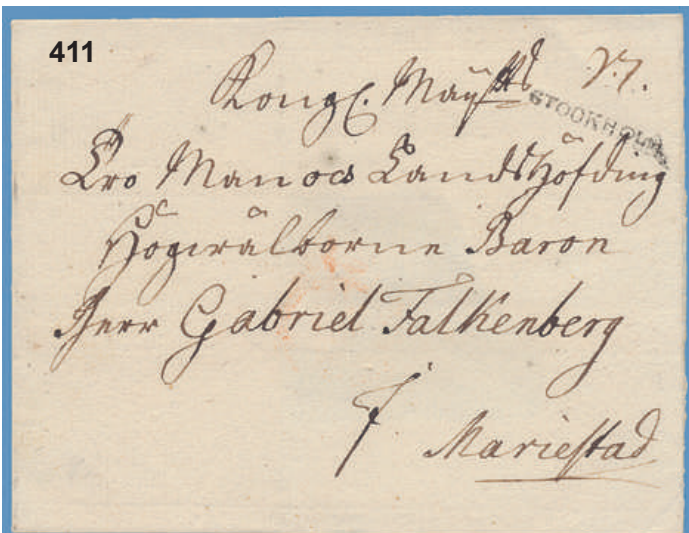 411
Kongl. Maÿtts
STOCKHOLM
Tro Man ocs Landshöfding
Högwälborne Baron
Herr Gabriel Falkenberg
Mariestad